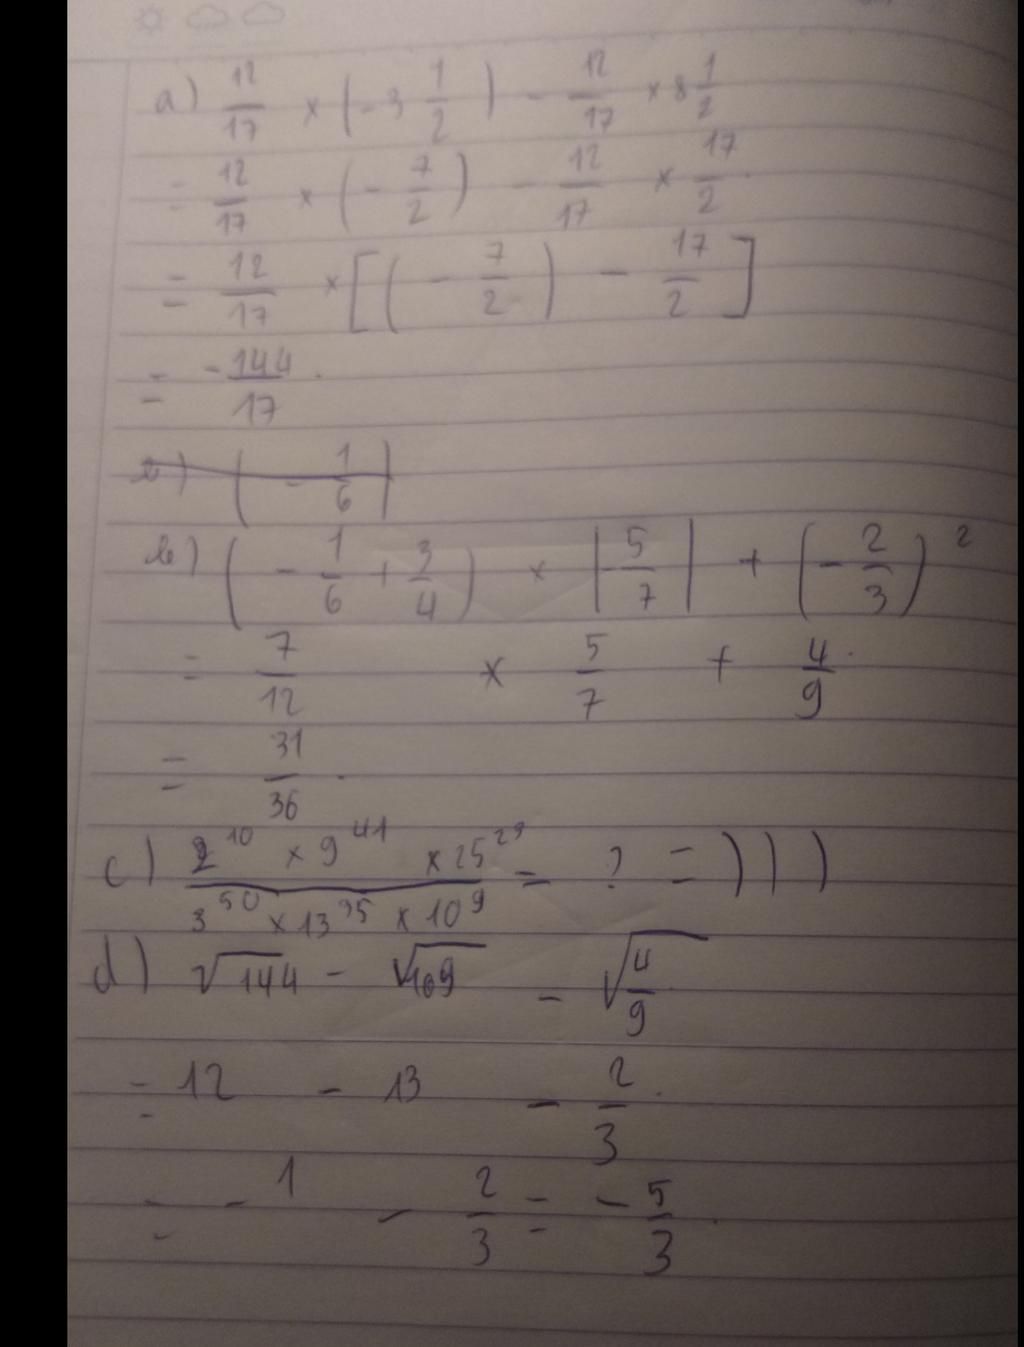 a) 12/17 × (-3 1/2) - 12/17 × 8 1/2
= 12/17 × (- 7/2) - 12/17 × 17/2
= 12/17 × [(- 7/2) - 17/2]
= -144/17.
b) (- 1/6)
b) (- 1/6 + 3/4) × |-5/7| + (- 2/3)²
= 7/12 × 5/7 + 4/9.
= 31/36.
c) 2^10 × 9^41 × 25^29 / 3^50 × 13^35 × 10^9 = ? =)))
d) √144 - √169 - √4/9
= 12 - 13 - 2/3.
= - 1 - 2/3 = - 5/3.